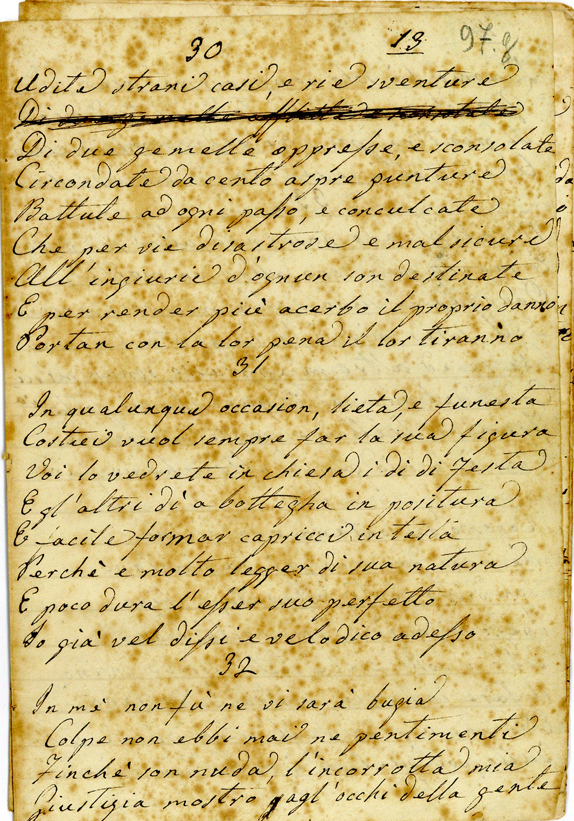 30
13
97.8
Udite strani casi, e rie sventure
Di due gemelle afflitte e sconsolate
Di due gemelle oppresse, e sconsolate
Circondate da cento aspre punture
Battute ad ogni passo, e conculcate
Che per vie disastrose e mal sicure
All'ingiurie d'ognun son destinate
E per render più acerbo il proprio danno
Portan con la lor pena il lor tiranno
31
In qualunque occasion, lieta, e funesta
Costui vuol sempre far la sua figura
Voi lo vedrete in chiesa i di di Festa
E gl'altri dì a bottegha in positura
E facile formar capricci in testa
Perchè e molto legger di sua natura
E poco dura l'esser suo perfetto
Io già vel dissi e velo dico adesso
32
In mè non fù ne vi sarà bugia
Colpe non ebbi mai ne pentimenti
Finchè son nuda, l'incorrotta mia
Giustizia mostro agl'occhi della gente